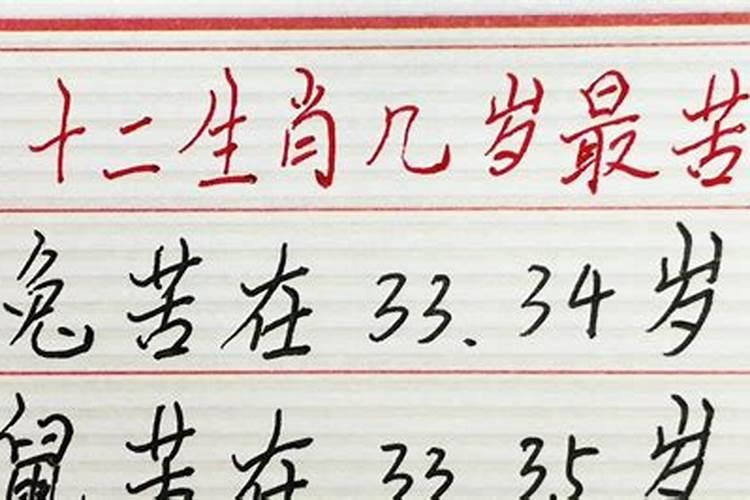 十二生肖几岁最苦
兔苦在 33.34岁
鼠苦在 33 35岁